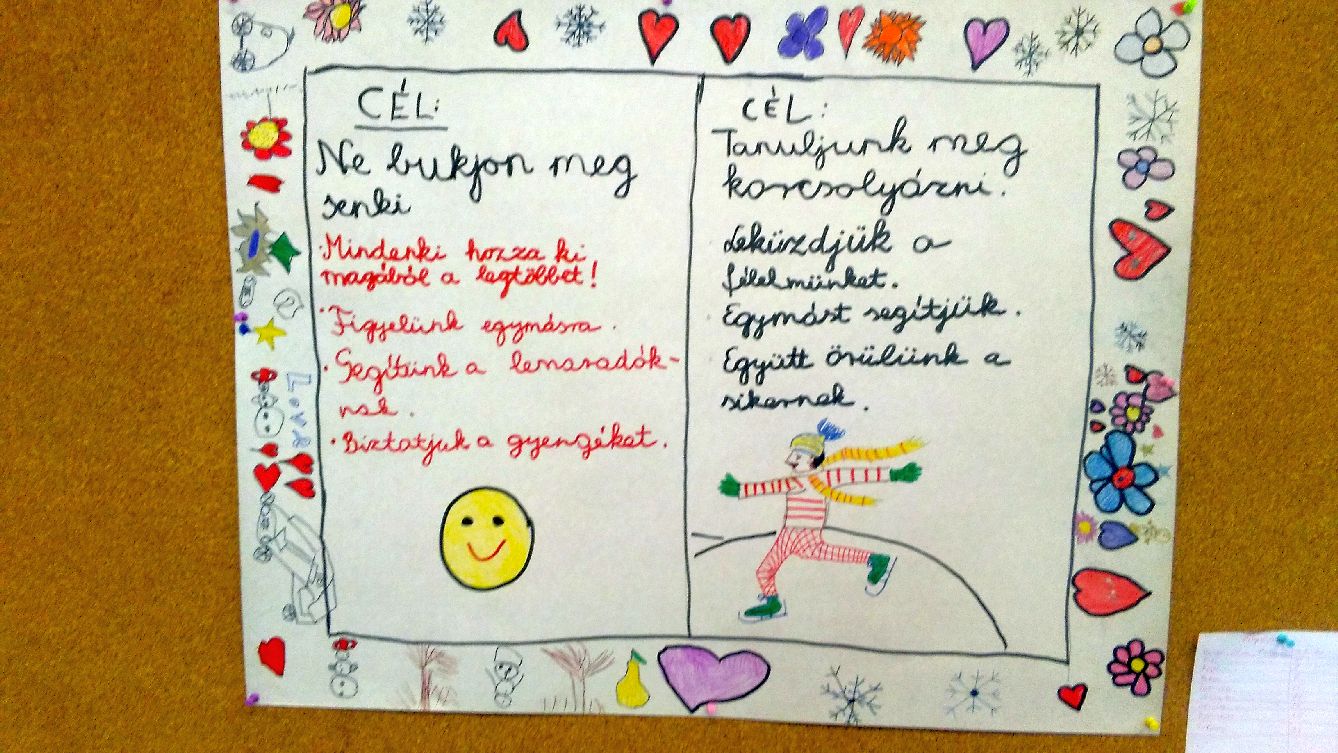 CÉL:
Ne bukjon meg
senki
• Mindenki hozza ki
magából a legtöbbet!
• Figyelünk egymásra.
• Segítünk a lemaradók-
nak.
• Biztatjuk a gyengéket.
CÉL:
Tanuljunk meg
korcsolyázni.
Leküzdjük a
félelmünket.
Egymást segítjük.
Együtt örülünk a
sikernek.
Love